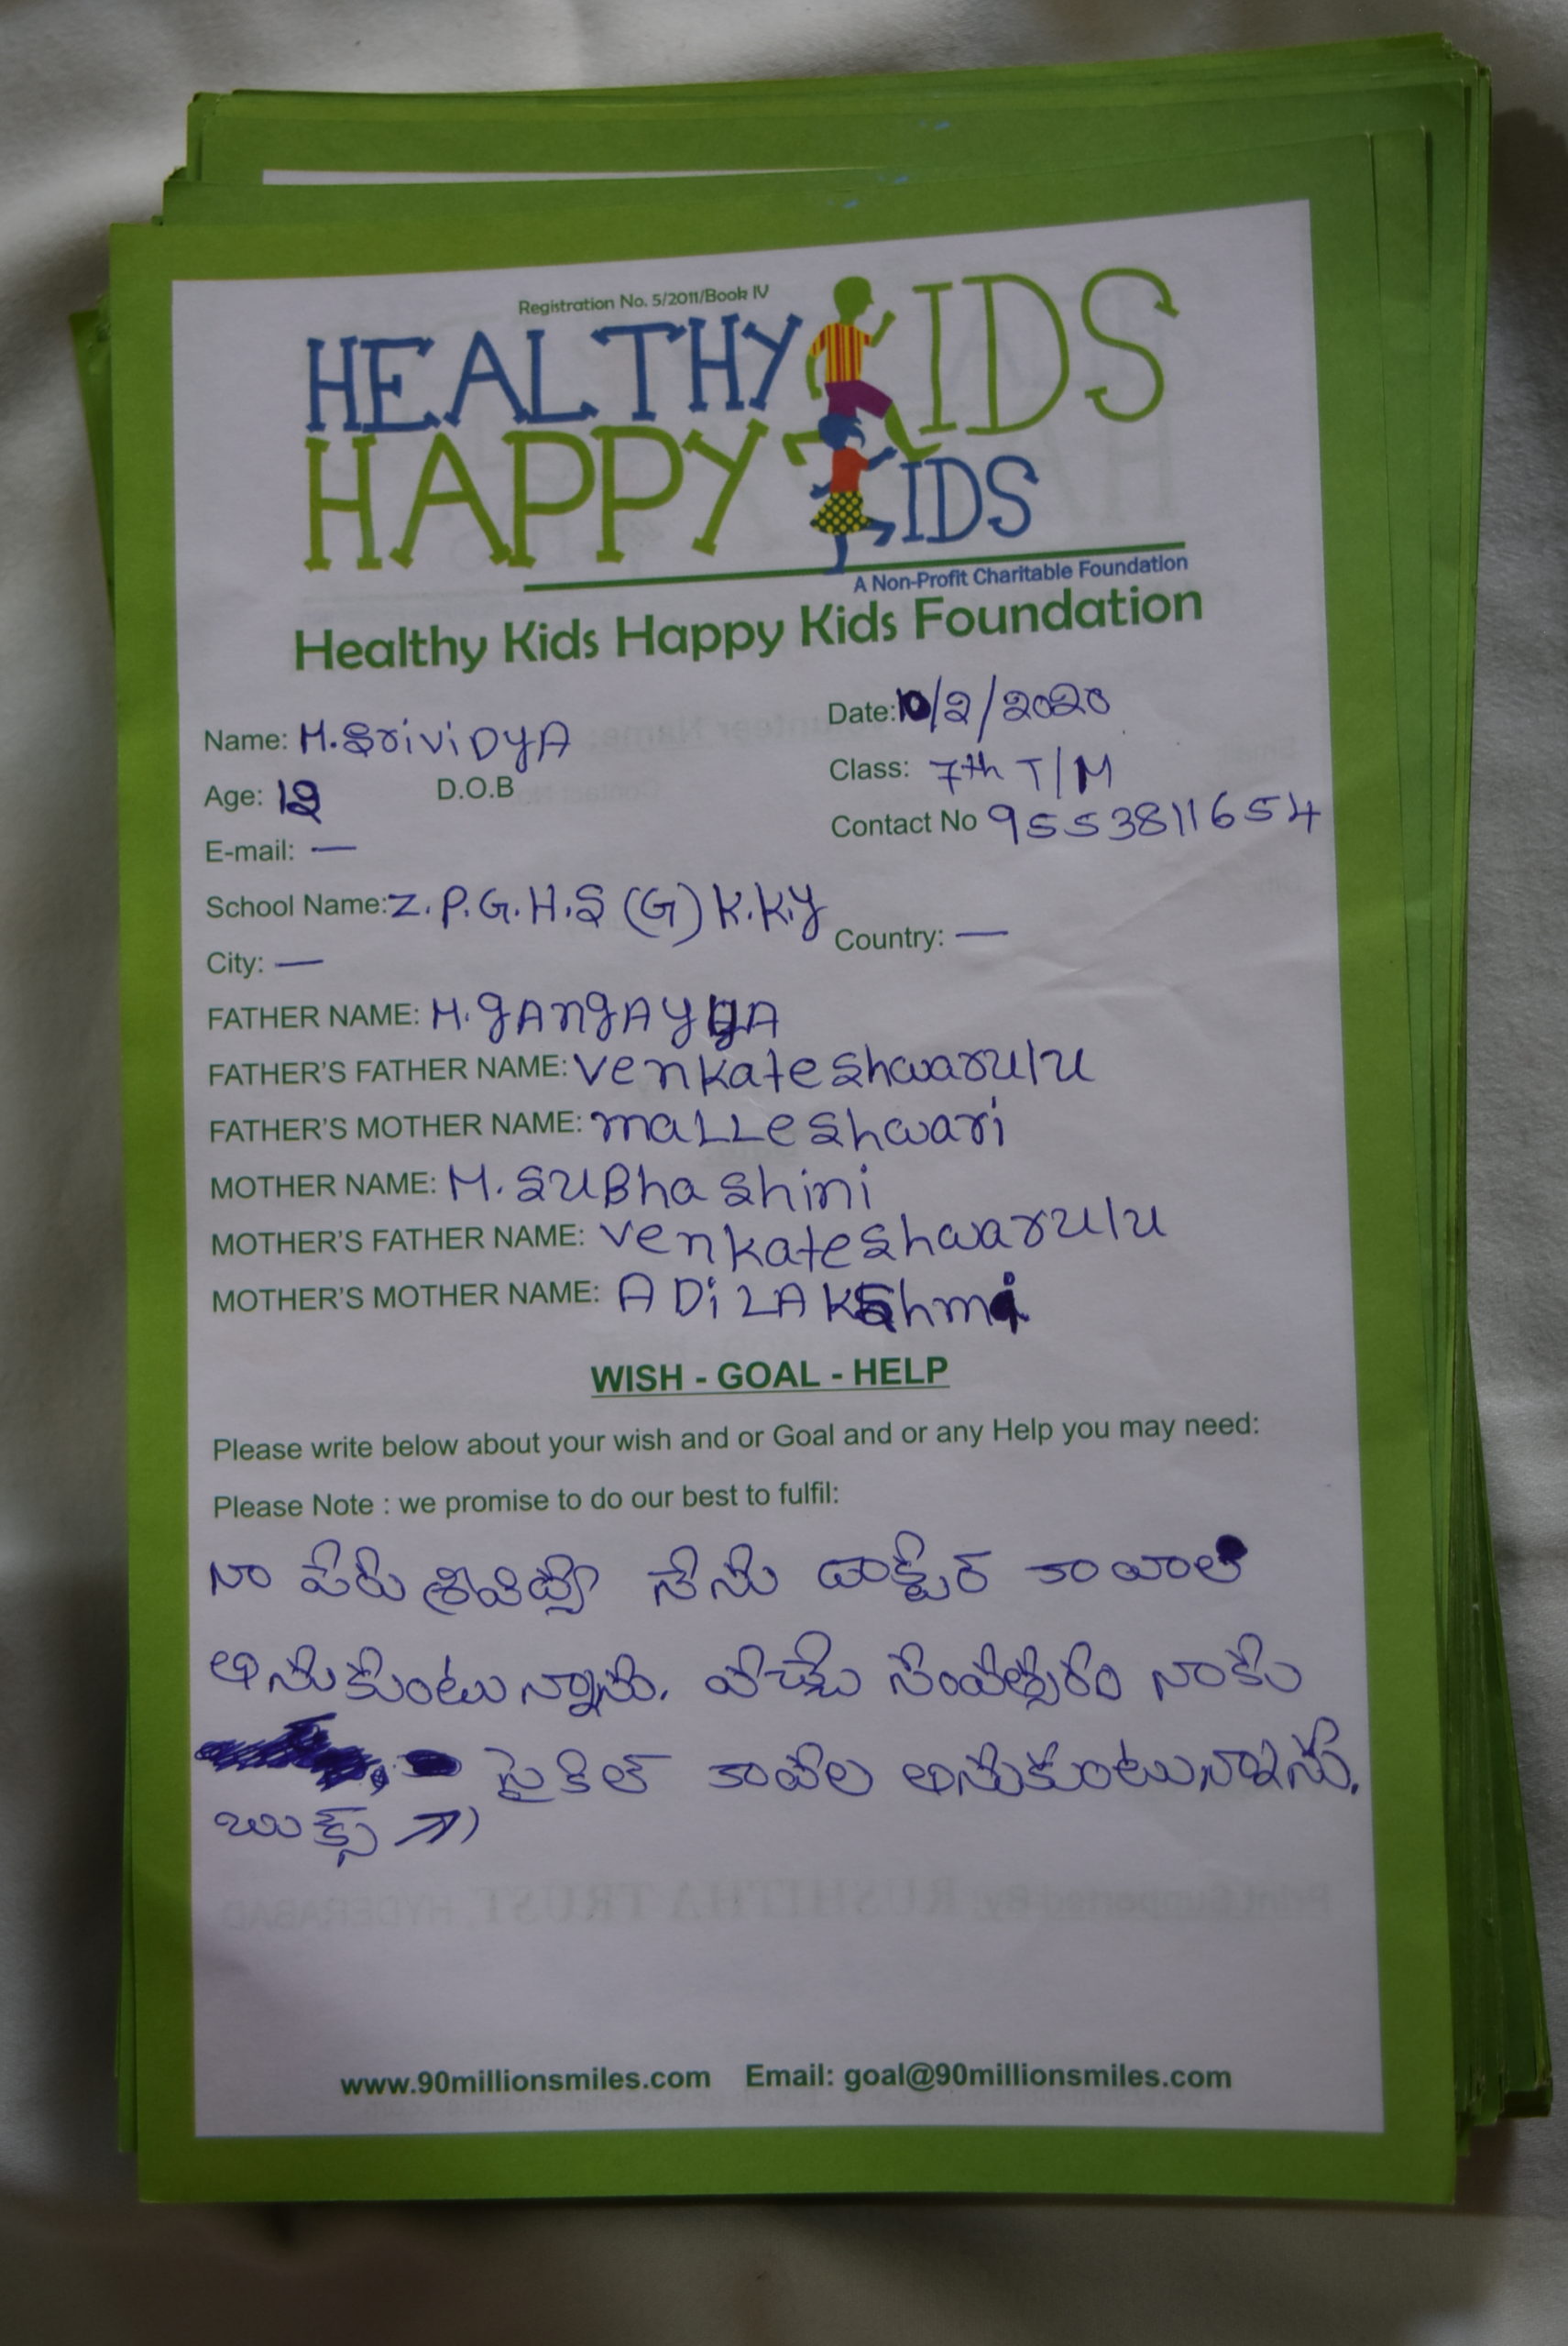 Registration No. 5/2011/Book IV
HEALTHY KIDS
HAPPY KIDS
A Non-Profit Charitable Foundation
Healthy Kids Happy Kids Foundation
Name: M. SriviDyA
Date: 10/2/2020
Age: 12 D.O.B
Class: 7th T/M
E-mail: —
Contact No 9553811654
School Name: Z.P.G.H.S (G) K.K.Y
City: —
Country: —
FATHER NAME: M. gAngAyyA
FATHER'S FATHER NAME: venkateshwarulu
FATHER'S MOTHER NAME: maLLeshwari
MOTHER NAME: M. SuBhashini
MOTHER'S FATHER NAME: venkateshwarulu
MOTHER'S MOTHER NAME: ADiLAkshmi
WISH - GOAL - HELP
Please write below about your wish and or Goal and or any Help you may need:
Please Note : we promise to do our best to fulfil:
నా పేరు శ్రీవిద్య నేను డాక్టర్ కావాలి
అనుకుంటున్నాను. వచ్చే సంవత్సరం నాకు
సైకిల్ కావల అనుకుంటున్నాను.
బుక్స్
www.90millionsmiles.com Email: goal@90millionsmiles.com